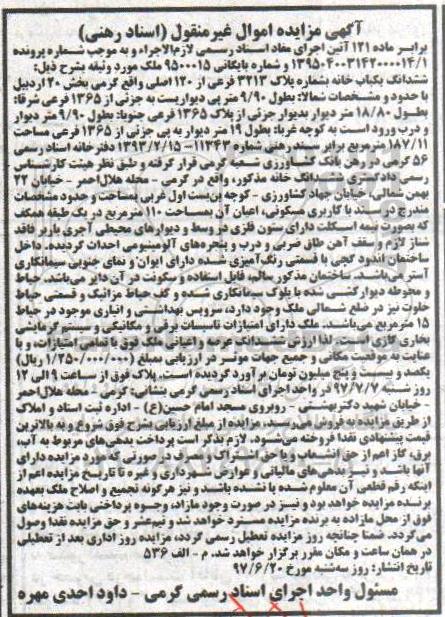 آگهی مزایده اموال غیرمنقول (اسناد رهنی)
برابر ماده ۱۲۱ آئین اجرای مفاد اسناد رسمی لازم‌الاجراء و به موجب شماره پرونده
۱۳۹۵۰۴۰۰۳۱۴۲۰۰۰۰۱۴/۱ و شماره بایگانی ۹۵۰۰۰۱۵ ملک مورد وثیقه بشرح ذیل:
ششدانگ یکباب خانه بشماره پلاک ۳۲۱۳ فرعی از ۱۲۰ اصلی واقع گرمی بخش ۲۰ اردبیل
با حدود و مشخصات شمالا: بطول ۹/۹۰ متر پی دیواریست به جزئی از ۱۳۶۵ فرعی شرقا:
بطول ۱۸/۸۰ متر دیوار بدیوار جزئی از پلاک ۱۳۶۵ فرعی جنوبا: بطول ۹/۹۰ متر دیوار
و درب ورود است به کوچه غربا: بطول ۱۹ متر دیوار به پی جزئی از ۱۳۶۵ فرعی مساحت
۱۸۷/۱۱ مترمربع برابر سند رهنی شماره ۱۱۳۴۳ – ۱۳۹۳/۷/۱۵ دفترخانه اسناد رسمی
۵۶ گرمی در رهن بانک کشاورزی شعبه گرمی قرار گرفته و طبق نظر هیئت کارشناسی
رسمی دادگستری ششدانگ خانه مذکور، واقع در گرمی – محله هلال‌احمر – خیابان ۲۲
بهمن شمالی، خیابان جهاد کشاورزی – کوچه بن‌بست اول غربی بمساحت و حدود مشخصات
مندرج در سند با کاربری مسکونی، اعیان آن بمساحت ۱۱۰ مترمربع در یک طبقه همکف
که بصورت نیمه اسکلت دارای ستون فلزی در وسط و دیوارهای محیطی آجری باربر فاقد
شناژ لازم و سقف آهن طاق ضربی و درب و پنجره‌های آلومینیومی احداث گردیده، داخل
ساختمان اندود گچی با قسمتی رنگ‌آمیزی شده دارای ایوان و نمای جنوبی سیمانکاری
آستر می‌باشد، ساختمان مذکور سالم، قابل استفاده و سکونت در آن دایر می‌باشد، حیاط
و محوطه دیوارکشی شده با بلوک سیمانکاری شده و کف حیاط موزائیک و قسمتی حیاط
خلوت نیز در ضلع شمالی ملک وجود دارد، سرویس بهداشتی و انباری موجود در حیاط
۱۵ مترمربع می‌باشد. ملک دارای امتیازات تاسیسات برقی و مکانیکی و سیستم گرمایشی
بخاری گازی است. لذا ارزش ششدانگ عرصه و اعیانی ملک فوق با تمامی امتیازات، و با
عنایت به موقعیت مکانی و جمیع جهات موثر در ارزیابی بمبلغ (۱/۲۵۰/۰۰۰/۰۰۰ ریال)
یکصد و بیست و پنج میلیون تومان برآورد گردیده است. پلاک فوق از ساعت ۹ الی ۱۲
روز شنبه ۹۷/۷/۷ در واحد اجرای اسناد رسمی گرمی بنشانی: گرمی – محله هلال‌احمر
– خیابان شهید دکتربهشتی – روبروی مسجد امام حسین(ع) – اداره ثبت اسناد و املاک
از طریق مزایده به فروش می‌رسد. مزایده از مبلغ ارزیابی بشرح فوق شروع و به بالاترین
قیمت پیشنهادی نقدا فروخته می‌شود. لازم بذکر است پرداخت بدهی‌های مربوطه به آب،
برق، گاز اعم از حق انشعاب و یا حق اشتراک و مصرف در صورتی که مورد مزایده دارای
آنها باشد و نیز بدهی‌های مالیاتی و عوارض شهرداری و غیره تا تاریخ مزایده اعم از
اینکه رقم قطعی آن معلوم شده یا نشده باشد و نیز هرگونه تجمیع و اصلاح ملک بعهده
برنده مزایده خواهد بود و نیز در صورت وجود مازاد، وجوه پرداختی بابت هزینه‌های
فوق از محل مازاد به برنده مزایده مسترد خواهد شد و نیم‌عشر و حق مزایده نقدا وصول
می‌گردد. ضمنا چنانچه روز مزایده تعطیل رسمی گردد، مزایده روز اداری بعد از تعطیلی
در همان ساعت و مکان مقرر برگزار خواهد شد. م – الف ۵۳۶
تاریخ انتشار: روز سه‌شنبه مورخ ۹۷/۶/۲۰
مسئول واحد اجرای اسناد رسمی گرمی – داود احدی مهره